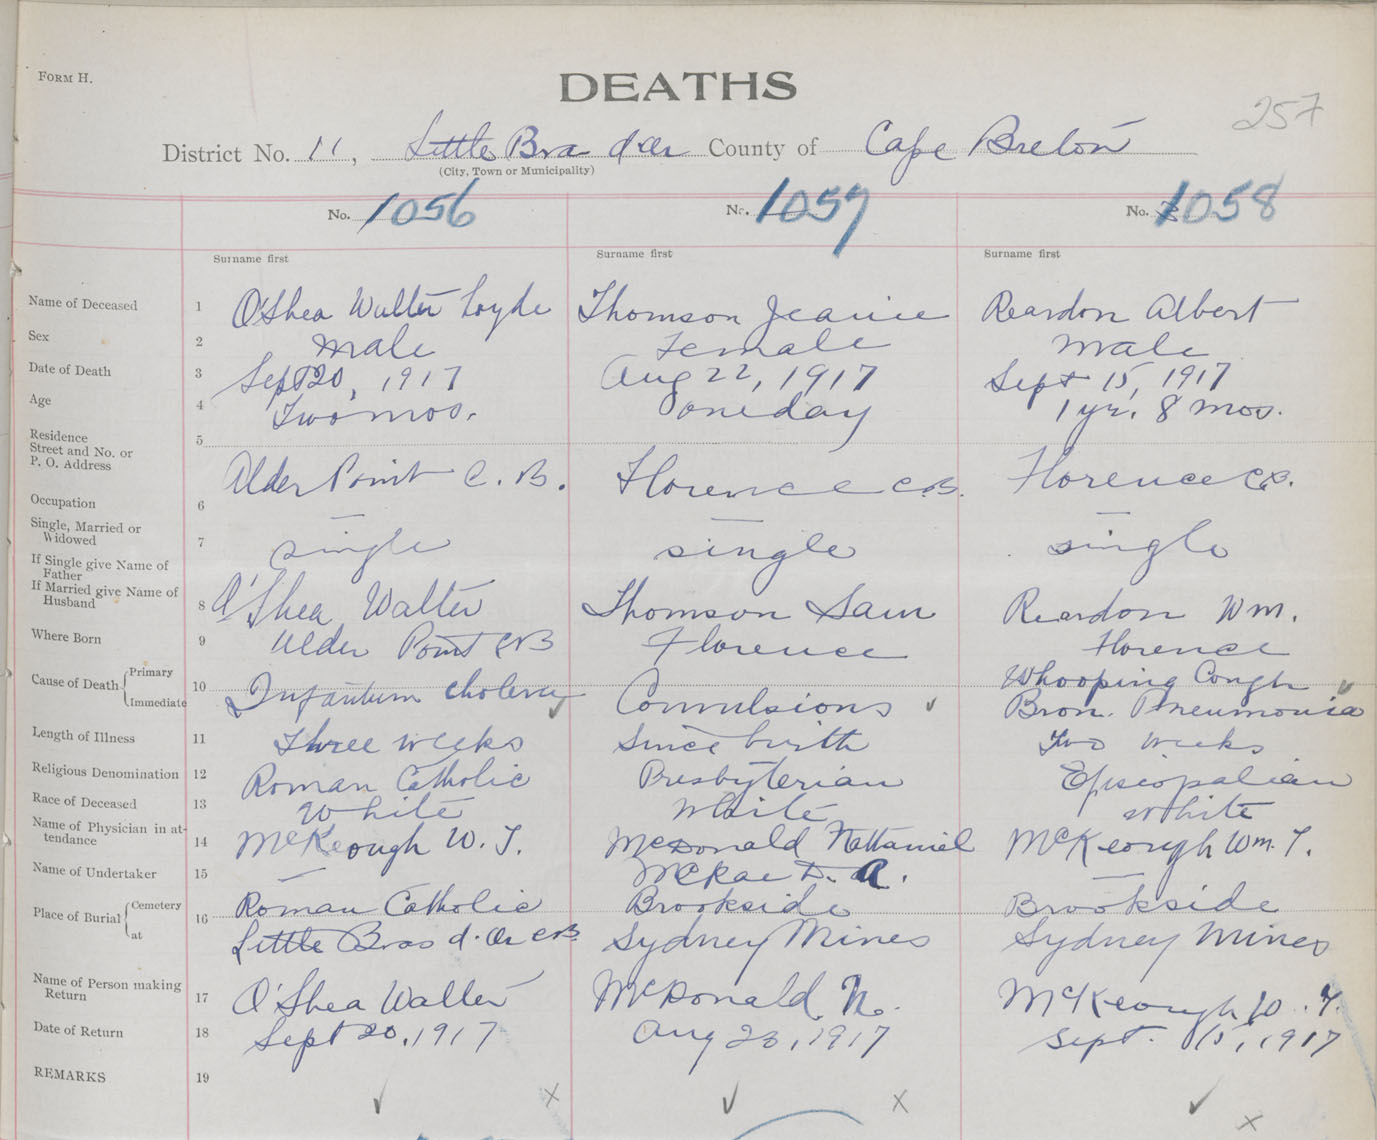 FORM H.
DEATHS
257
District No. 11, Little Bra d'Or County of Cape Breton
(City, Town or Municipality)
No. 1056 No. 1057 No. 1058
Surname first Surname first Surname first
Name of Deceased 1 O'Shea Walter Loyde Thomson Jeanie Reardon Albert
Sex 2 Male Female Male
Date of Death 3 Sept 20, 1917 Aug 22, 1917 Sept 15, 1917
Age 4 Two mos. one day 1 yr. 8 mos.
Residence 5
Street and No. or
P. O. Address Alder Point C. B. Florence C.B. Florence C.B.
Occupation 6 — — —
Single, Married or
Widowed 7 single single single
If Single give Name of
Father
If Married give Name of
Husband 8 O'Shea Walter Thomson Sam Reardon Wm.
Where Born 9 Alder Point C B Florence Florence
Cause of Death { Primary 10 Infantum cholera Convulsions Whooping Cough
Immediate Bron. Pneumonia
Length of Illness 11 Three weeks Since birth Two weeks
Religious Denomination 12 Roman Catholic Presbyterian Episcopalian
Race of Deceased 13 White White White
Name of Physician in at-
tendance 14 McKeough W. J. McDonald Nathaniel McKeough Wm. J.
Name of Undertaker 15 — McRae D. A. —
Place of Burial { Cemetery 16 Roman Catholic Brookside Brookside
at Little Bras d'Or C B Sydney Mines Sydney Mines
Name of Person making
Return 17 O'Shea Walter McDonald N. McKeough W. J.
Date of Return 18 Sept 20, 1917 Aug 23, 1917 Sept. 15, 1917
REMARKS 19